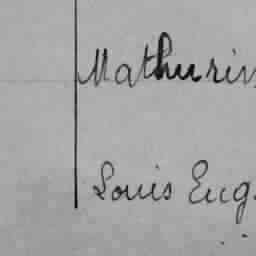 Mathurin
Louis Eug.